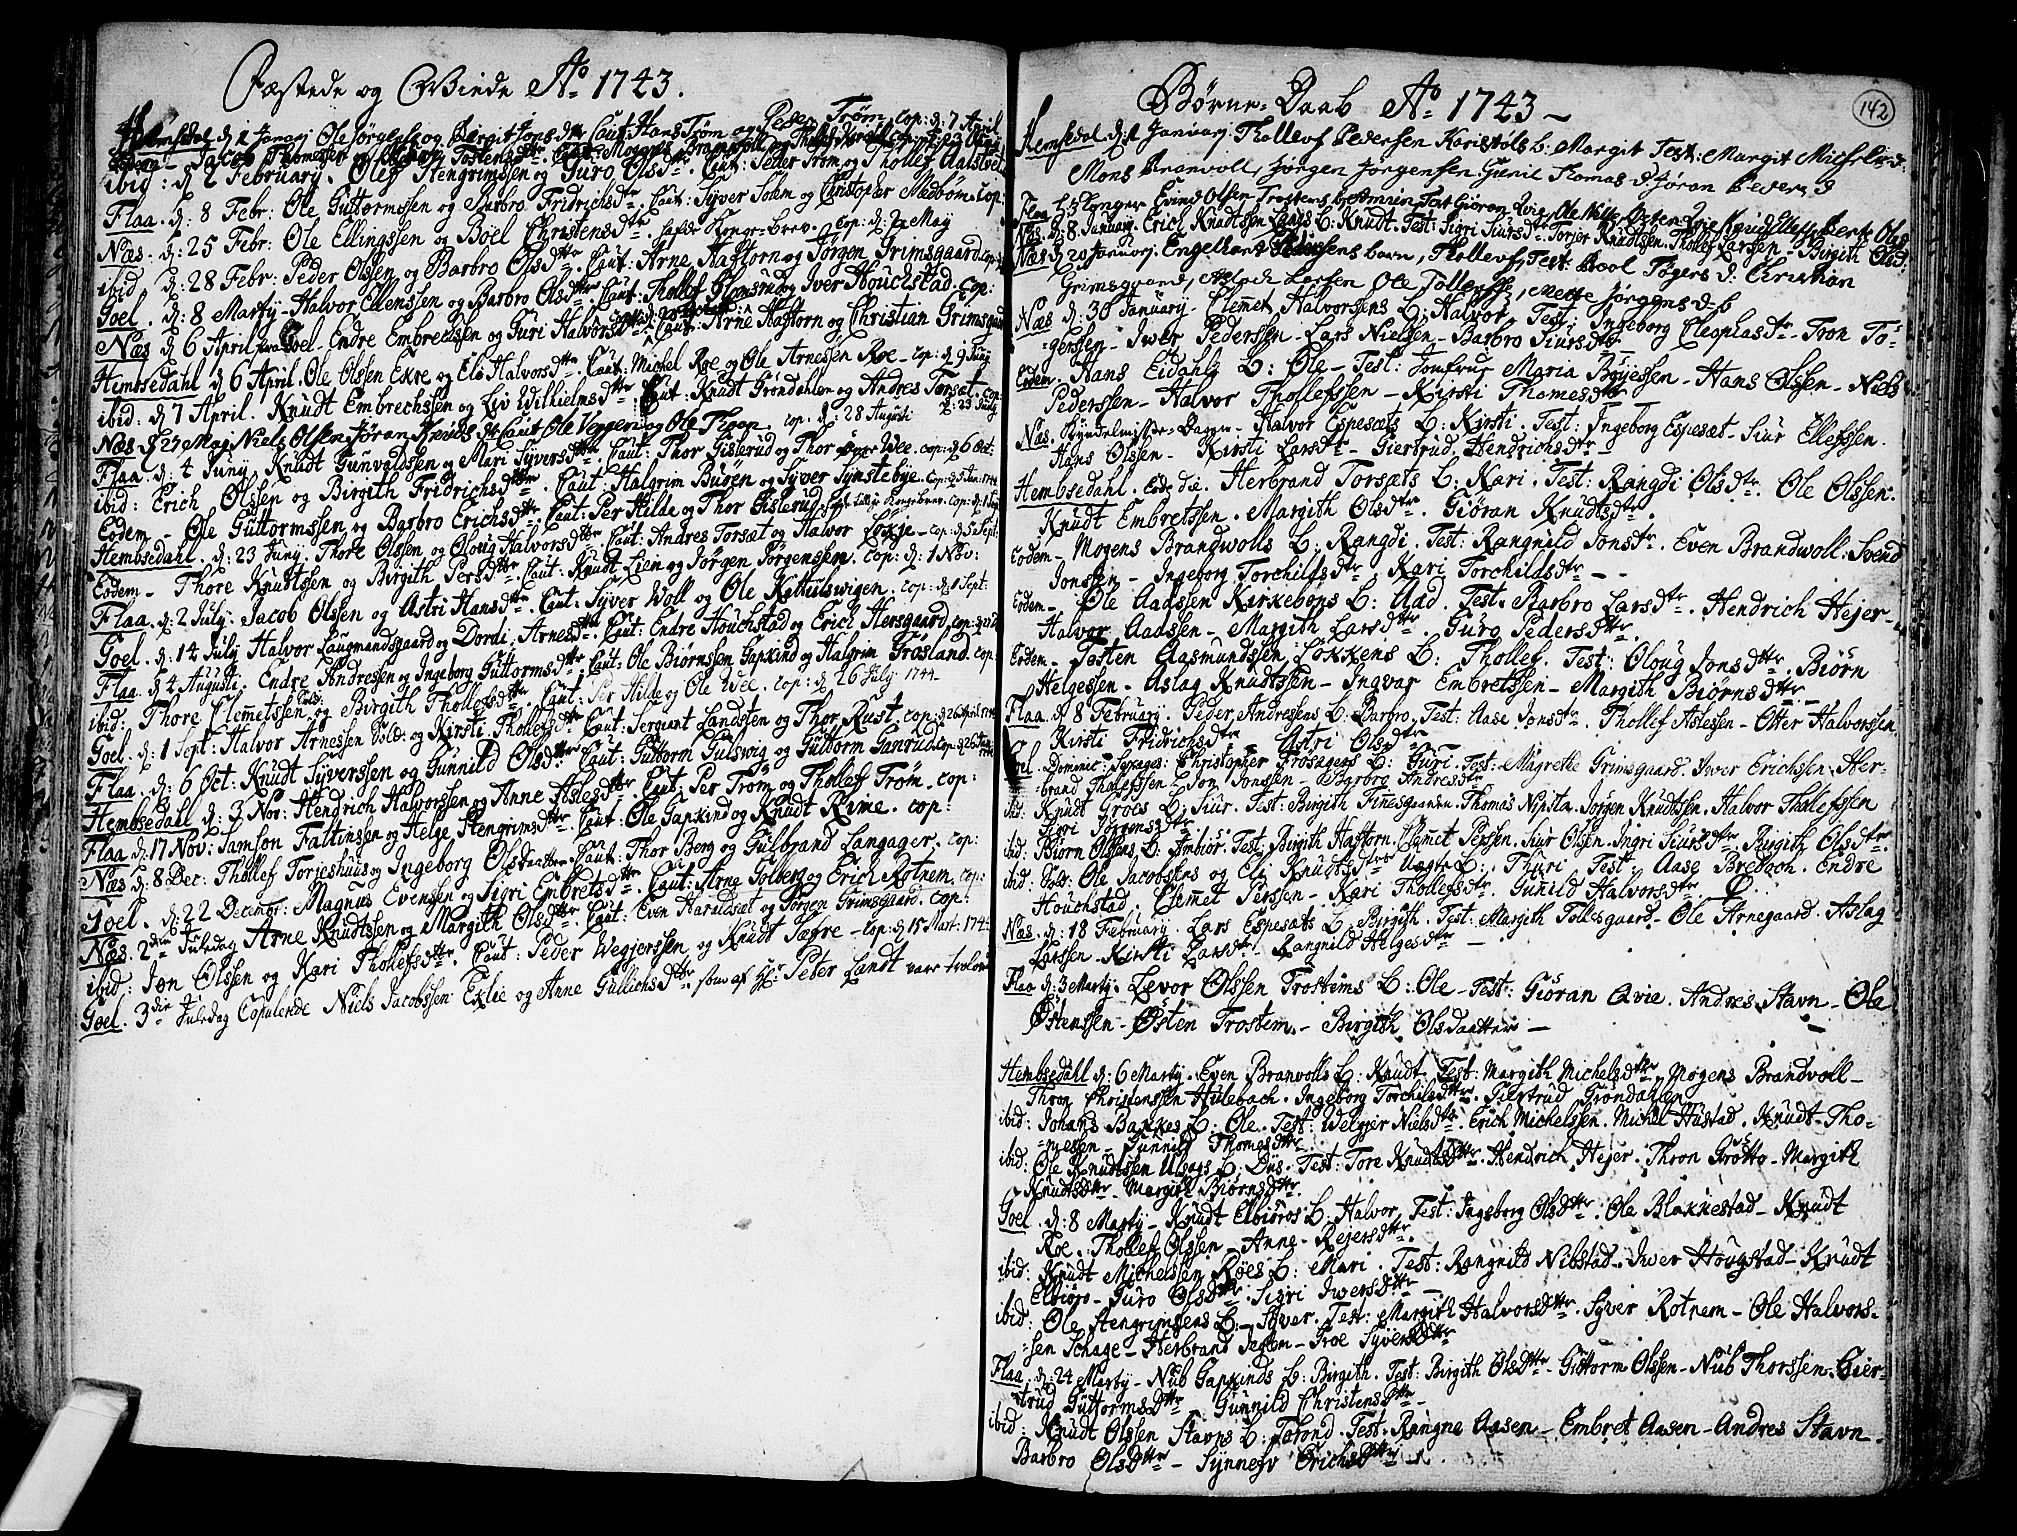 Fæstede og Viede Ao 1743.
Hemsdal d: 1 Janrj Ole Jørgens og Birgit Jons dtr Caut: Hans Trøm og Peder Trøm cop: d: 7 April
Eodem - Jacob Thomessen og Tostens dtr Caut: Mogens Branvoll og
ibid: d 2 February. Olef Stengrimssen og Guro Ols dtr. Caut: Peder Trøm og Thollef Aalstvet
Flaa. d: 8 Febr: Ole Guttormssen og Barbro Fridrichs dtr. Caut: Syver Solem og Christopher Medbøm. Cop:
Næs. d: 25 Febr: Ole Ellingssen og Boel Christens dtr. hafde Konge-brev. Cop: d: 2 May
ibid, d: 28 Febr: Peder Olssen og Barbro Ols dtr. Caut: Arne Haftorn og Jørgen Grimsgaard. cop:
Goel. d: 8 Martij Halvor Ellenssen og Barbro Ols dtr. Caut: Thollef Glomsrud og Iver Houchstad. Cop:
Næs d 6 April fra Goel. Endre Embrechsen og Guri Halvors dtr Caut: Arne Haftorn og Christian Grimsgaard
Hembsedahl d 6 April. Ole Olssen Ekre og Eli Halvors dtr. Caut: Michel Roe og Ole Arnessen Roe - cop: d 9 Juny
ibid: d 7 April. Knudt Embrechssen og Liv Wilhelms dtr. Caut: Knudt Grøndahlen og Andres Torsæt. cop: d: 23 July
Næs. d 27 May Niels Olsen Jøran Knuds dtr Caut Ole Veggern og Ole Traan cop: d: 28 Augusti
Flaa. d: 4 Juny. Knudt Gunvaldssen og Mari Syvers dtr. Caut: Thor Gislerud og Thor Wee. cop: d 6 Oct:
ibid: Erich Olssen og Birgith Fridrichs dtr. Caut: Halgrim Buøen og Syver Synstebye. cop: d: 5 Jan: 1744
Eodem - Ole Guttormssen og Barbro Erichs dtr. Caut: Per Hilde og Thor Gislerud. cop:
Hembsedahl. d: 23 Juny. Thore Olssen og Oloug Halvors dtr. Caut: Andres Torsæt og Halvor Løkje - cop: d: 5 Sept:
Eodem - Thore Knudtssen og Birgith Pers dtr. Caut: Knudt Lien og Jørgen Jørgenssen. cop: d: 1 Nov:
Flaa. d: 2 July. Jacob Olssen og Astri Hans dtr. Caut: Syver Woll og Ole Kittulswigen. cop: d: 1 Sept:
Goel. d: 14 July Halvor Laugmandsgaard og Dordi Arnes dtr. Caut: Endre Houchstad og Erich Hersgaard cop:
Flaa. d 4 Augusti. Endre Andressen og Ingeborg Guttorms dtr. Caut: Ole Biørnssen Gapkind og Halgrim Grøsland. cop:
ibid: Thore Clemetssen og Birgith Thollefs dtr. Caut: Per Hilde og Ole Wee. cop: d 26 July 1744
Goel. d: 1 Sept: Halvor Arnessen Sold: og Kirsti Thollefs dtr. Caut: Sergiant Landsten og Thor Rust. cop: d: 26 April 1744
Flaa. d: 6 Oct: Knudt Syverssen og Gunnild Ols dtr. Caut: Guttorm Gulswig og Guttorm Ganrud. cop: d 26
Hembsedahl d: 3 Nov: Hendrich Halvorssen og Anne Asles dtr. Caut: Per Trøm og Thollef Trøm. cop:
Flaa d: 17 Nov: Samson Faltinsen og Helge Stengrims dtr. Caut: Ole Gapkind og Knudt Rime. cop:
Næs d: 8 Dec: Thollef Torjeshuus og Ingeborg Olsdaatter. Caut: Thor Berg og Gulbrand Langager. cop:
Goel. d: 22 Decembr: Magnus Evensen og Sigri Embrets dtr. Caut: Arne Tolberg og Erich Rotnem. cop:
Næs. 2den Juledag Arne Knudtssen og Margith Ols dtr. Caut: Even Haraldsæt og Jørgen Grimsgaard. cop:
ibid: Jon Olssen og Kari Thollefs dtr. Caut: Peder Wegjerssen og Knudt Sæfre - cop: d: 15 Mart: 1744
Goel. 3die Juledag Copulerede Niels Jacobssen Eklie og Anne Gullichs dtr. som af Hr Peter Landt vare trolov
Børne-Daab Ao 1743
142
Hemsedal d: 1 Januarj Thollevf Pedersen Karistøls b: Margit Test: Margit Michels d:
Mons Branvoll, Jørgen Jørgensen Gunil Thomas d: Jøran Pevers d
Flaa Evind Olsen Trostems b: Test Giøran Qvie, Ole
Næs d: 8 January. Erich Knudtssen Laags b: Knudt. Test: Sigri Siurs dtr. Torjer Knudtsen. Thollef Larsen. Birgith Ols d:
Næs d 20 Januarj. Engelhart Pedersens barn, Thollevf, Test: Bool Togers d: Christian
Grimsgaard, Aslach Larsen Ole Tollefss, Mette Jørgens d.
Næs d: 30 January - Clemet Halvorsens b: Halvor. Test: Ingeborg Cleophas dtr - Tron To-
gerssen - Iwer Pederssen - Lars Nielsen - Barbro Siurs dtr
Eodem. Hans Eidahls b: Ole - Test: Jomfrue Maria Bøyessen - Hans Olssen - Niels
Pederssen - Halvor Thollefssen - Kirsti Thomes dtr
Næs. Kyndelmisse-Dagen - Halvor Espesæts b: Kirsti. Test: Ingeborg Espesæt - Siur Ellefssen.
Hans Olssen - Kirsti Lars dtr - Giertrud Hendrichs dtr
Hembsedahl. Eod: die. Herbrand Torsæts b: Kari. Test: Rangdi Ols dtr. Ole Olssen.
Knudt Embretssen. Margith Ols dtr. Giøran Knudts dtr.
Eodem - Mogens Brandwolls b: Rangdi. Test: Rangnild Jons dtr. Even Brandwoll. Svend
Jonssen - Ingeborg Torchilds dtr, Kari Torchilds dtr
Eodem - Ole Aadssen Kirkebøns b: Aad. Test: Barbro Lars dtr. Hendrich Hejer -
Halvor Aadssen - Margith Lars dtr. Guro Peders dtr.
Eodem - Tosten Aasmundssen Løkkens b: Thollef. Test: Oloug Jons dtr. Biørn
Helgessen - Aslag Knudtssen - Ingvar Embretssen - Margith Biørns dtr
Flaa. d 8 February. Peder Andressens b: Barbro. Test: Aase Jons dtr. Thollef Aslessen - Otter Halvorssen
Kirsti Fridrichs dtr Astri Ols dtr
Goel. Dominic: Sexages: Christopher Frøsagers b: Guri. Test: Magrethe Grimsgaard. Iwer Erichsen. Her-
brand Tholefssen. Jon Jonssen - Barbro Andres dtr
ibid: Knudt Groes b: Siur. Test: Birgith Finnesgaarden. Thomas Nipsta. Jørgen Knudtssen. Halvor Tholefssen
Guri Jørgens dtr
ibid: Biørn Olssens b: Embiør. Test: Birgith Haftorn. Clemet Perssen. Siur Olsen. Ingri Siurs dtr. Birgith Ols dtr.
ibid: Sold: Ole Jacobsens og Eli Knudts dtr b: Thuri. Test: Aase Brebach. Endre
Houchstad. Clemet Perssen - Kari Thollefs dtr. Gunild Halvors dtr
Næs. d: 18 February. Lars Espesæts b. Birgith. Test: Margith Tollesgaard - Ole Arnegaard. Aslag
Larssen - Kirsti Lars dtr - Rangnild Helges dtr -
Flaa d: 3 Martij. Levor Olssen Trostems b: Ole - Test: Giøran Qvie. Andres Stavn - Ole
Østenssen - Østen Trostem - Birgith Olsdaatter -
Hembsedahl d: 6 Martij. Even Branvolls b: Knudt. Test: Margith Michels dtr. Mogens Brandvoll -
Thron Christenssen Hulebach. Ingeborg Torchils dtr. Giertrud Grøndalen
ibid: Johans Bakkes b: Ole. Test: Welgjer Niels dtr. Erich Michelssen. Michel Hustad. Knudt Tho-
messen - Gunnild Thomes dtr
ibid: Ole Knudtssen Ulsags b: Dys. Test: Tore Knudts dtr. Hendrich Hejer. Thron Grøtto - Margith
Knudts dtr - Margith Biørns dtr.
Goel. d: 8 Martij - Knudt Elbiørøs b: Halvor. Test: Ingeborg Ols dtr. Ole Blakkestad - Knudt
Roe. Thollef Olssen - Anne Rejers dtr.
ibid: Knudt Michelssen Røes b: Mari. Test: Rangnild Nibstad. Iwer Hougstad - Knudt
Elbiørø - Guro Ols dtr. Sigri Iwers dtr
ibid: Ole Stengrimsens b: - Syver. Test: Margith Halvors dtr. Syver Rotnem - Ole Halvors-
sen Schage - Herbrand - Groe Syvers dtr
Flaa. d: 24 Martij - Nub Gapkinds b: Birgith. Test: Birgith Ols dtr - Guttorm Olssen - Nub Thorssen - Gier-
trud Guttorms dtr. Gunnild Christens dtr -
ibid: Knudt Olssen Stavns b: Torond. Test: Rangne Aasen - Embret Aasen - Andres Stavn -
Barbro Ols dtr - Synnefv Erichs dtr.